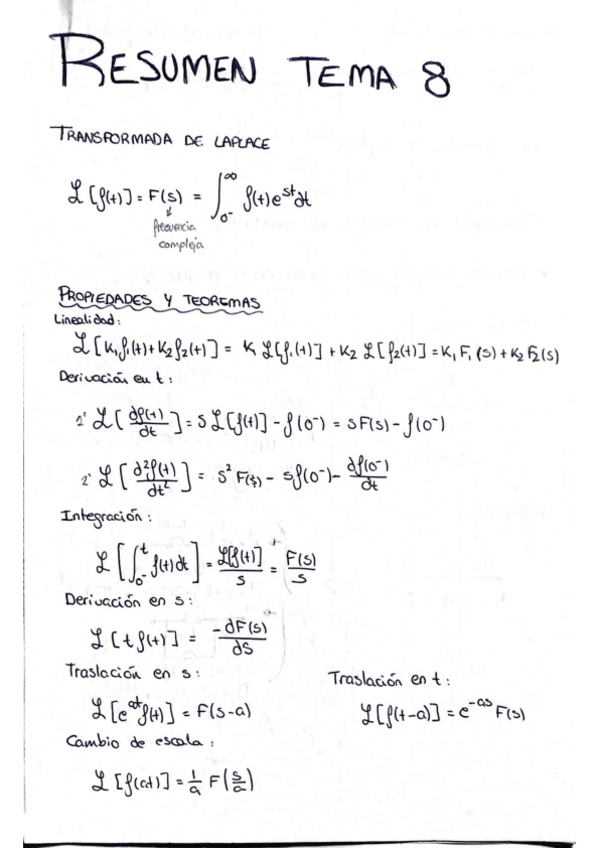 RESUMEN TEMA 8
TRANSFORMADA DE LAPLACE
ℒ[f(t)] = F(s) = ∫₀₋^∞ f(t)e^{st}dt
frecuencia
compleja
PROPIEDADES Y TEOREMAS
Linealidad:
ℒ[K₁f₁(t)+K₂f₂(t)] = K ℒ[f₁(t)] + K₂ ℒ[f₂(t)] = K₁F₁(s) + K₂F₂(s)
Derivación en t:
1ª ℒ[df(t)/dt] = Sℒ[f(t)] - f(0⁻) = sF(s) - f(0⁻)
2ª ℒ[d²f(t)/dt²] = S²F(s) - sf(0⁻) - df(0⁻)/dt
Integración:
ℒ[∫₀₋^t f(t)dt] = ℒ[f(t)]/s = F(s)/s
Derivación en s:
ℒ[t f(t)] = -dF(s)/ds
Traslación en s:
ℒ[e^{at}f(t)] = F(s-a)
Traslación en t:
ℒ[f(t-a)] = e^{-as} F(s)
Cambio de escala:
ℒ[f(at)] = 1/a F(s/a)